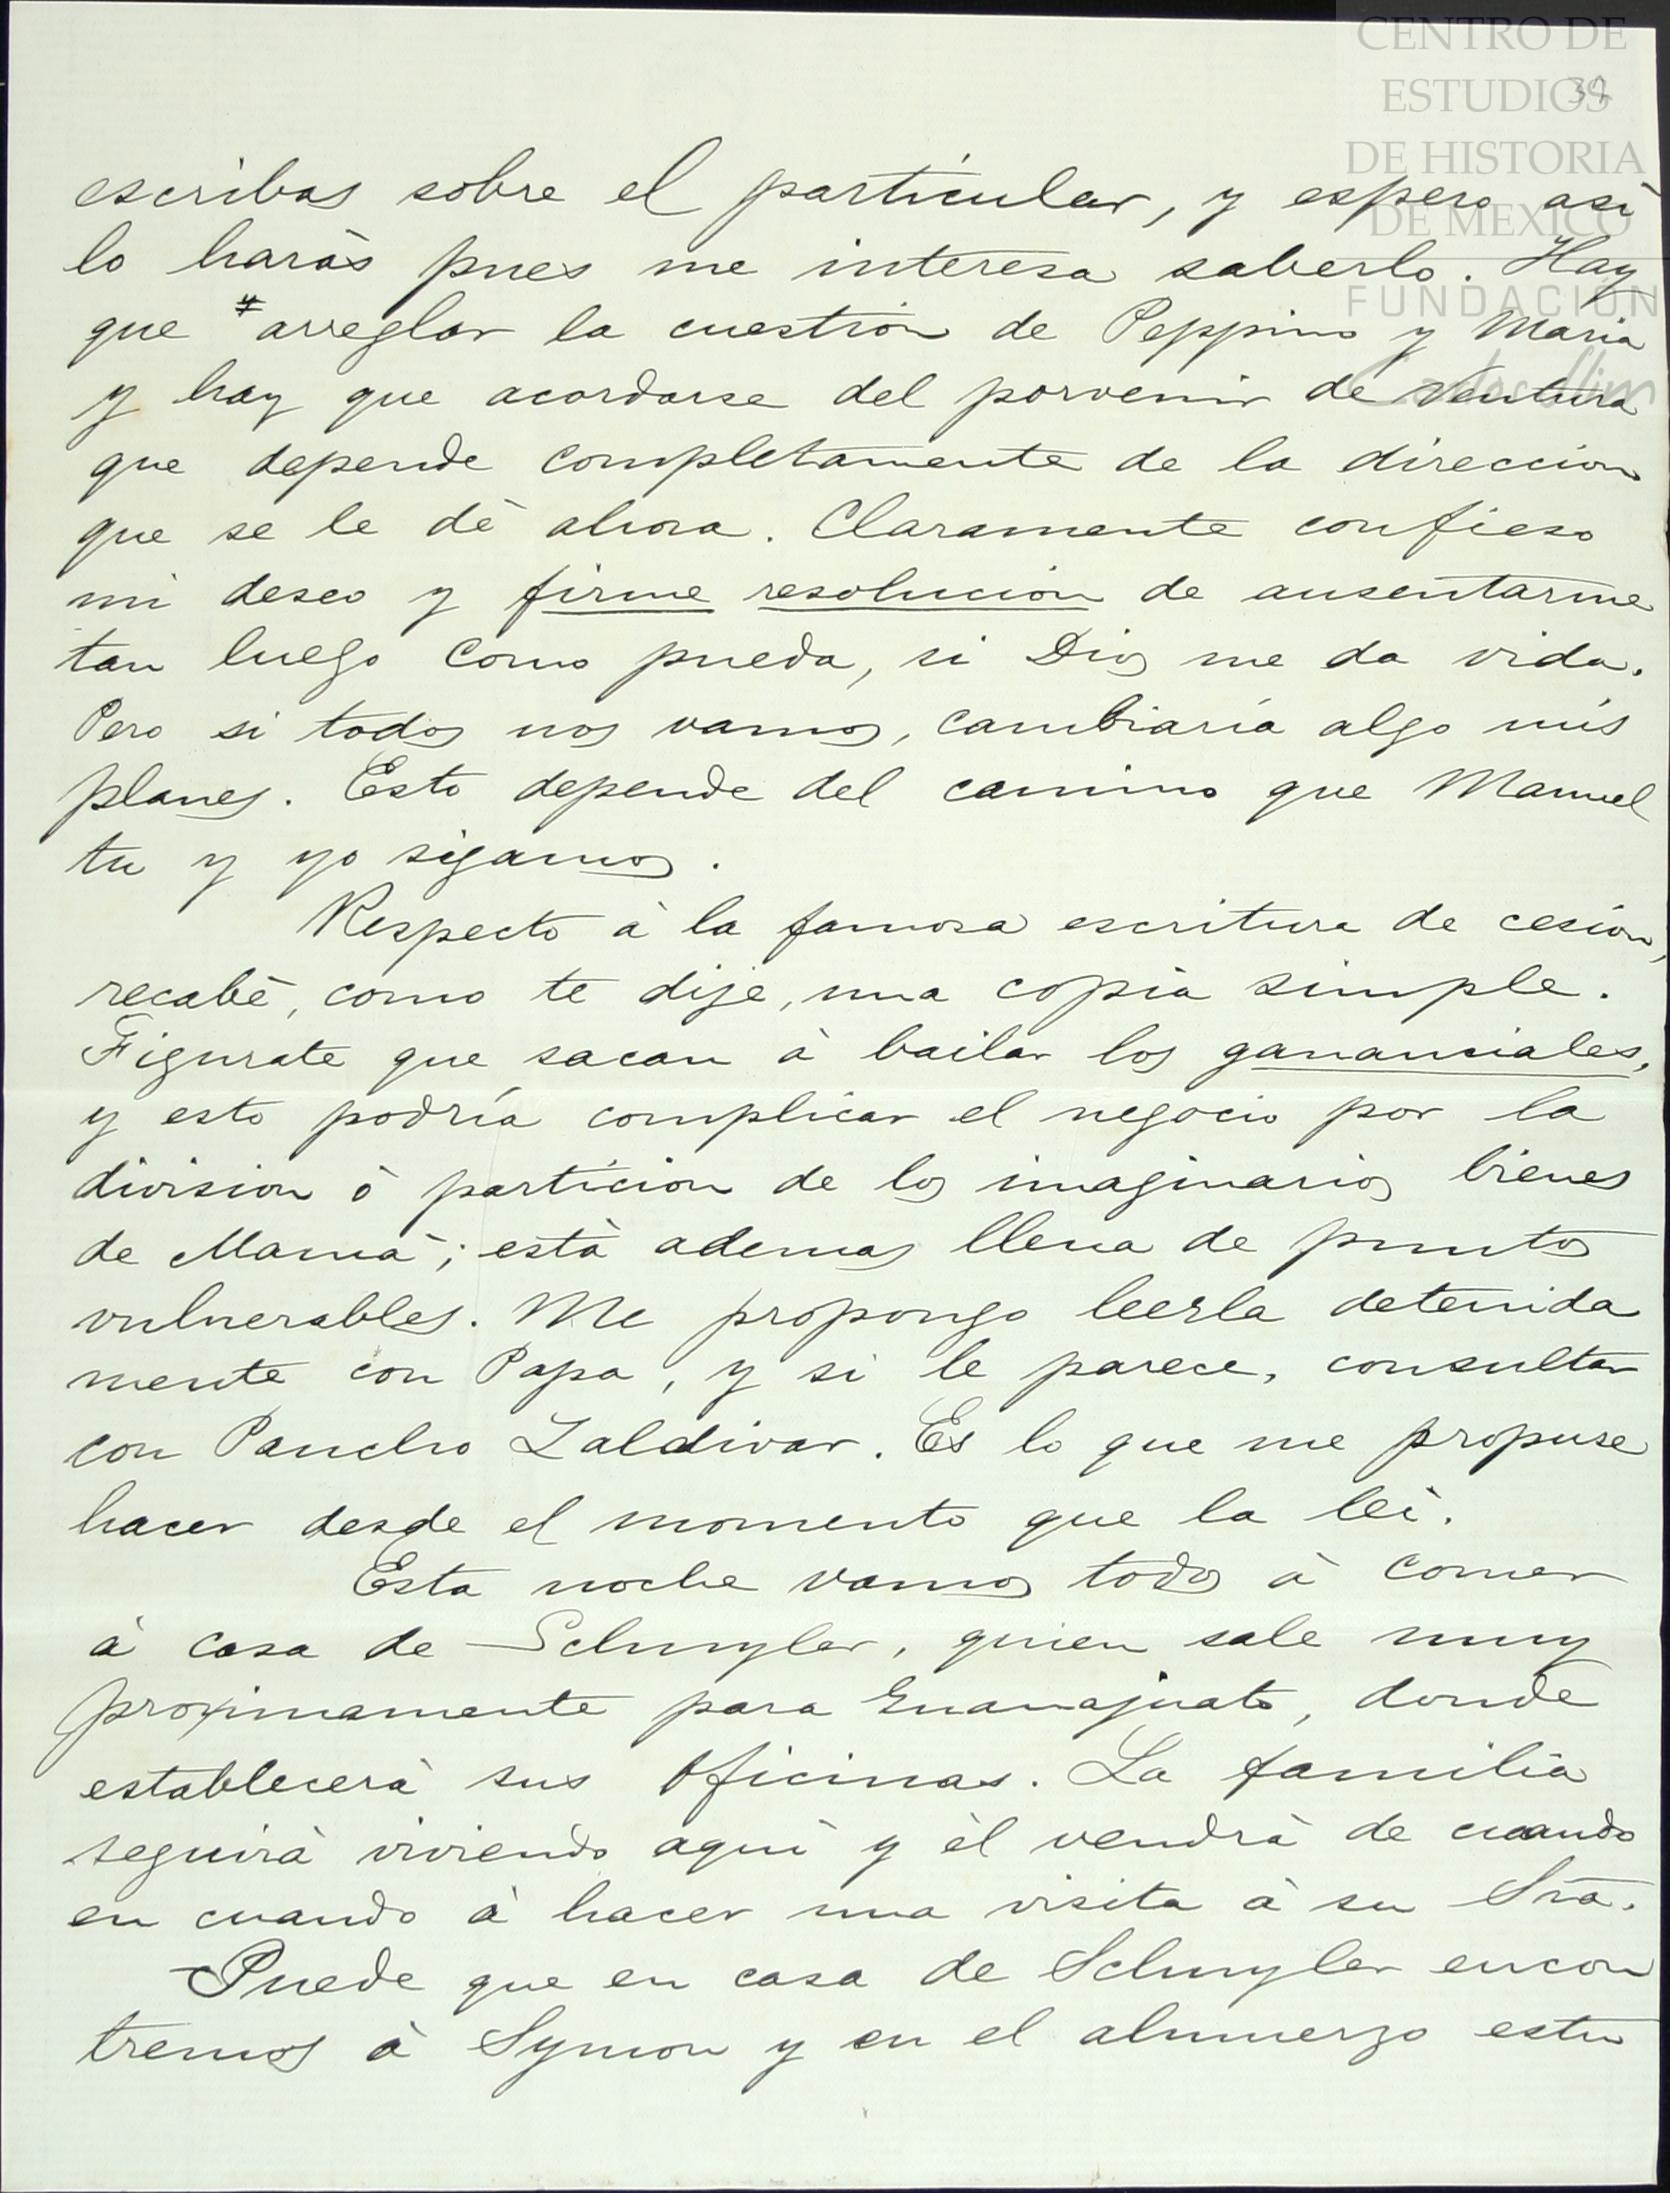 CENTRO DE
ESTUDIOS
DE HISTORIA
DE MEXICO
FUNDACIÓN
Carlos Slim
escribas sobre el particular, y espero asi
lo harás pues me interesa saberlo. Hay
que arreglar la cuestion de Peppino y Maria
y hay que acordarse del porvenir de Ventura
que depende completamente de la direccion
que se le dé ahora. Claramente confieso
mi deseo y firme resolucion de ausentarme
tan luego como pueda, si Dios me da vida.
Pero si todos nos vamos, cambiaría algo mis
planes. Esto depende del camino que Manuel
tu y yo sigamos.
Respecto à la famosa escritura de cesion,
recabé, como te dije, una copia simple.
Figurate que sacan à bailar los gananciales,
y esto podría complicar el negocio por la
division ò particion de los imaginarios bienes
de Mamá; està ademas llena de puntos
vulnerables. Me propongo leerla detenida
mente con Papa, y si le parece, consultar
con Pancho Zaldivar. Es lo que me propuse
hacer desde el momento que la leì.
Esta noche vamos todos à comer
à casa de Schuyler, quien sale muy
proximamente para Guanajuato, donde
establecerà sus oficinas. La familia
seguirà viviendo aquì y èl vendrà de cuando
en cuando à hacer una visita à su Sra.
Puede que en casa de Schuyler encon
tremos à Symon y en el almuerzo estu